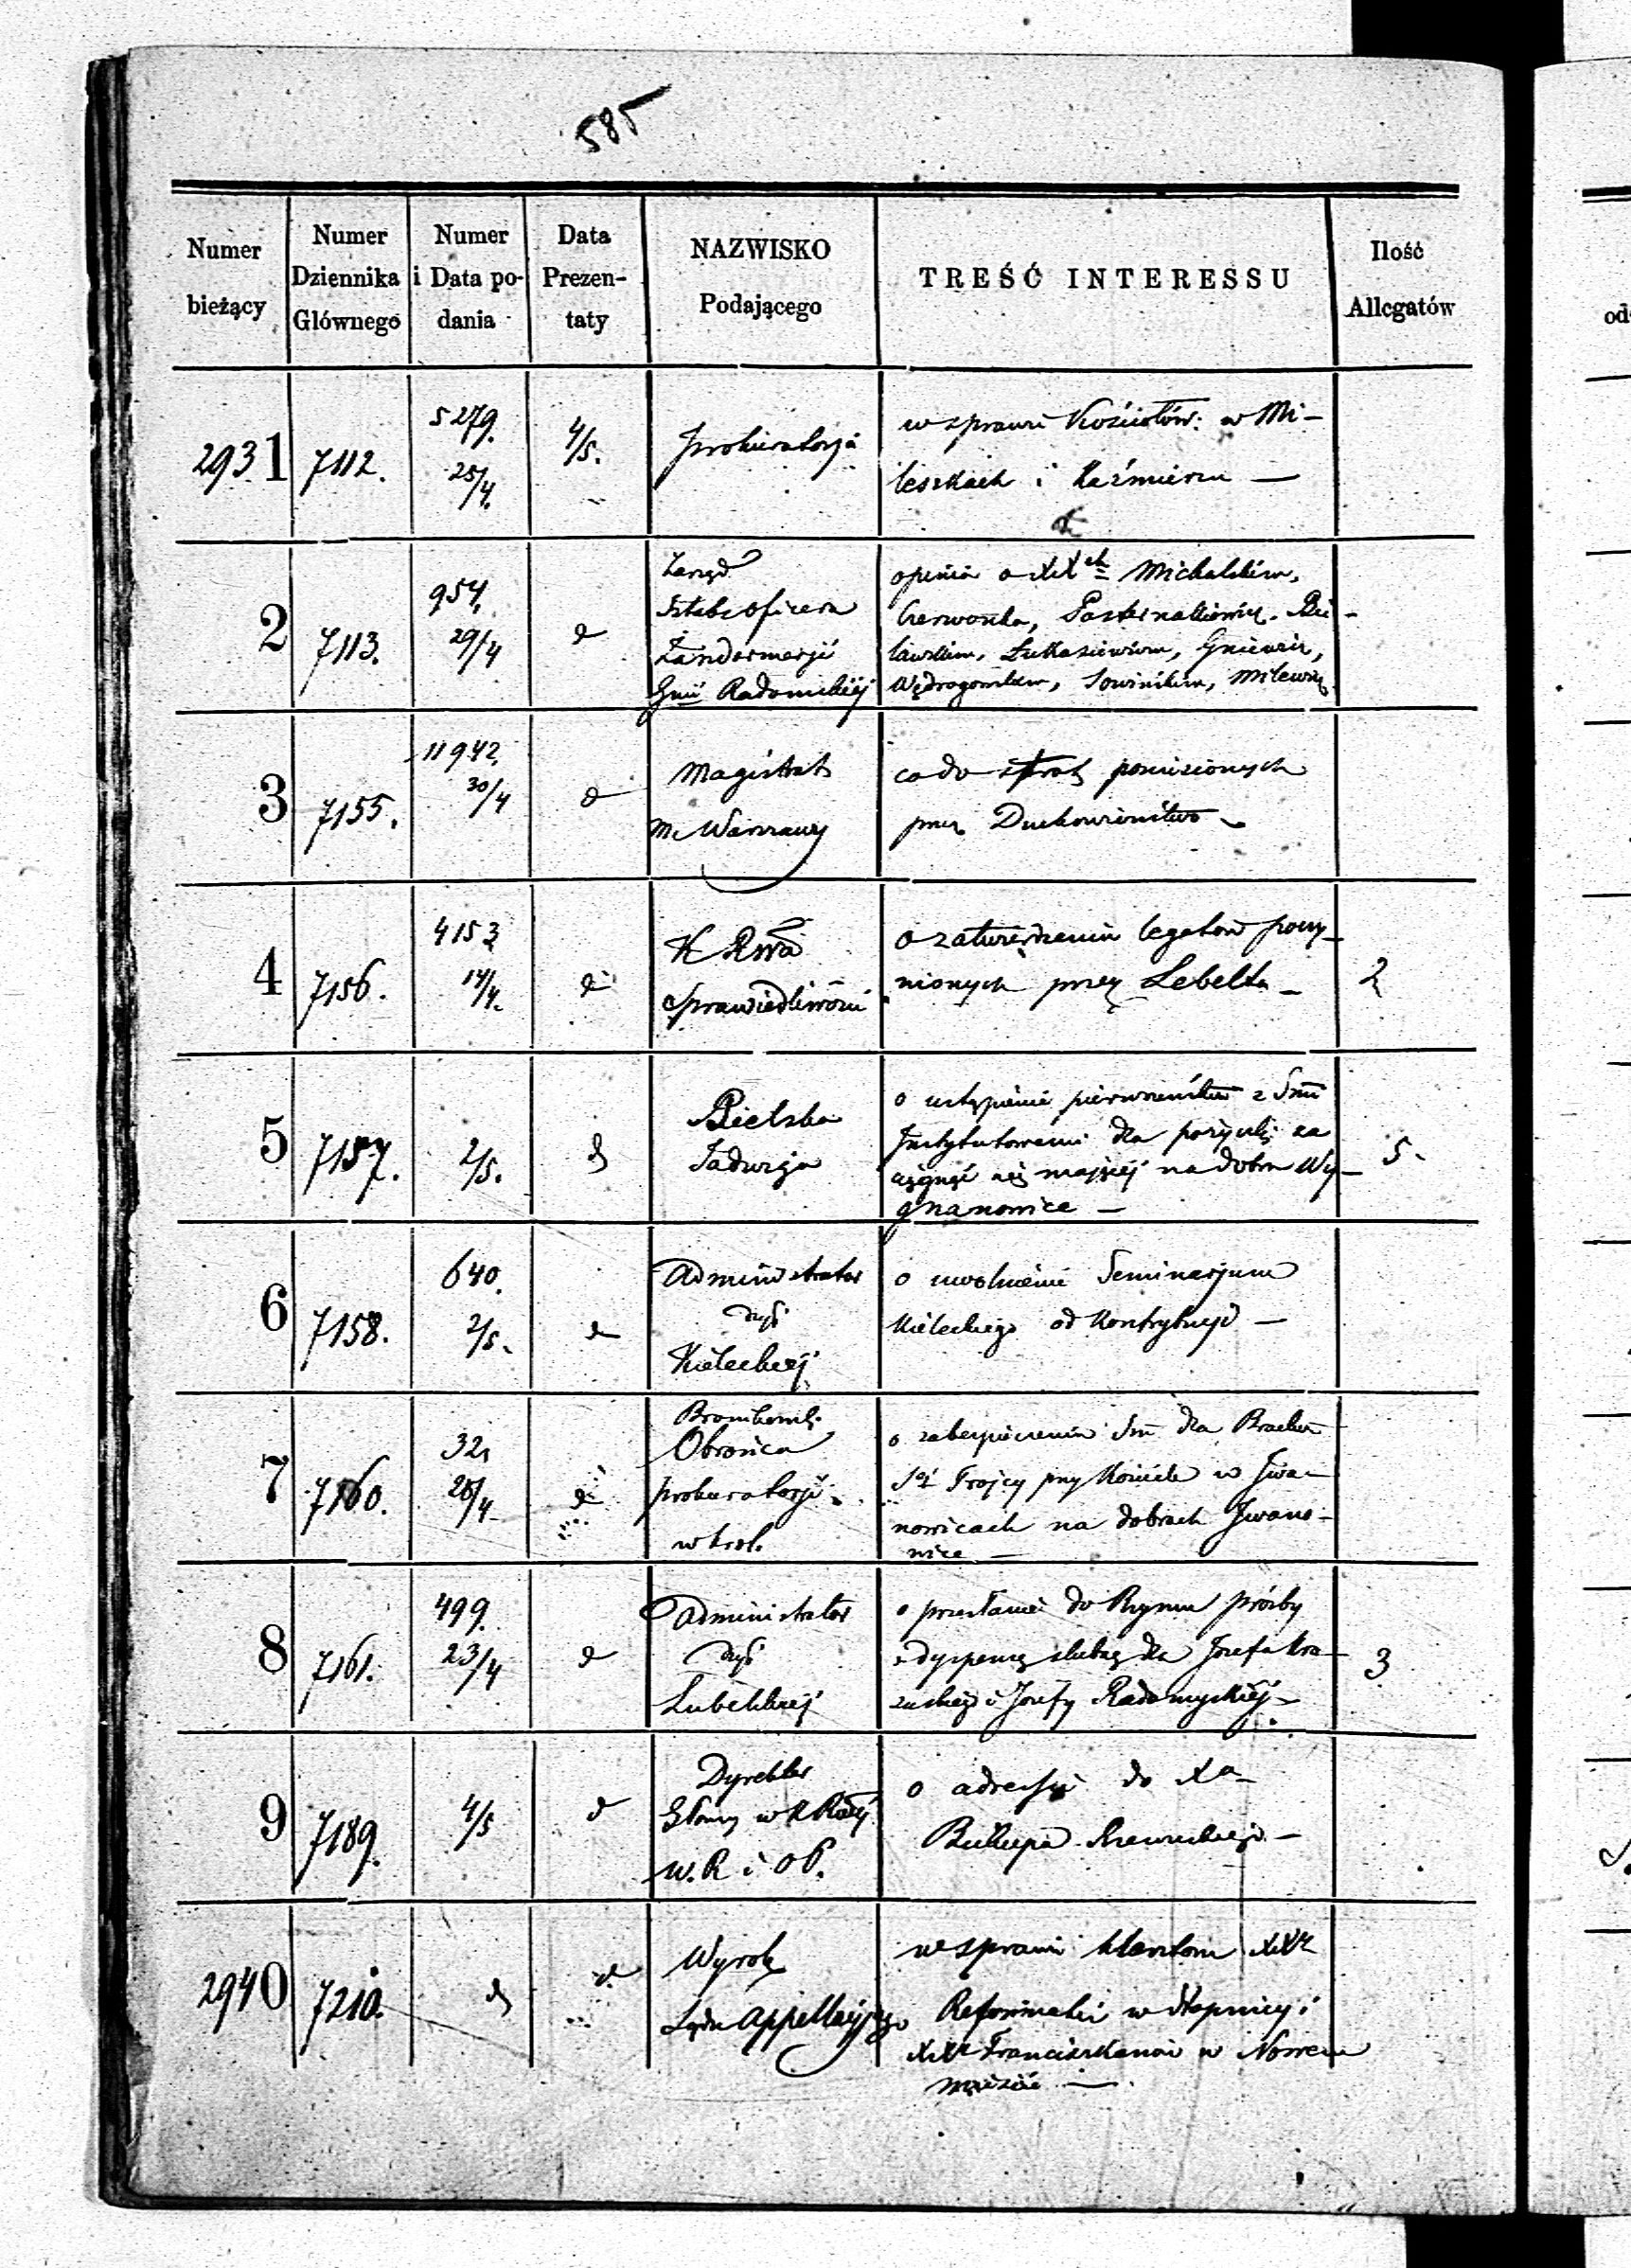 585
Numer bieżący
Numer Dziennika Głównego
Numer i Data podania
Data Prezentaty
NAZWISKO Podającego
TREŚĆ INTERESSU
Ilość Allegatów
2931
7112.
5279.
25/4.
4/5.
Prokuratorja
w sprawie Kościołów: w Mi-
leszkach i Kaźmierzu —
2
7113.
954.
29/4
d
Zarząd
Sztabs Oficera
Żandarmerji
Gnii Radomskiej
opinia o XXch Michalskim,
Czerwonka,
Łukasiewiczem,
Sowińskim,
3
7155.
11942.
30/4
d
Magistrat
m. Warszawy
co do strat poniesionych
przez Duchowieństwo —
4
7156.
4153
14/4.
d
K Rwa
Sprawiedliwości
o zatwierdzeniu legatów poczy-
nionych przez Lebelta —
2
5
7157.
2/5.
d
Bielska
Jadwiga
o ustąpienie pierwszeństwa z Smi
Instytutowemi dla pożyczki za
ciągnąć się mającej na dobra Wy-
gnanowice —
5.
6
7158.
640.
2/5.
d
Administrator
dyi
Kieleckiej
o uwolnienie Seminarjum
Kieleckiego od Kontrybucji —
7
7160.
32.
26/4
d
Obrońca
Prokuratorji
w Król.
o zabezpieczeniu Sm dla Bractwa
Sej Trojcy przy Kościele w Iwa-
nowicach na dobrach Iwano-
wice —
8
7161.
499.
23/4
d
Administrator
dyi
Lubelskiej
o przesłanie do Rzymu prośby
o dyspensę ślubną dla Józefa
i Józefy Radomyskiej —
3
9
7189.
4/5
d
Dyrektor
Główny w K Rzej
W. R i O P.
o adressie do Xa
Biskupa Rzewuskiego —
2940
7210.
d
d
Wyrok
Sądu Appellacyjnego
w sprawie klasztoru XXr
Reformatów w Stopnicy i
XXr Franciszkanów w Nowem
mieście —